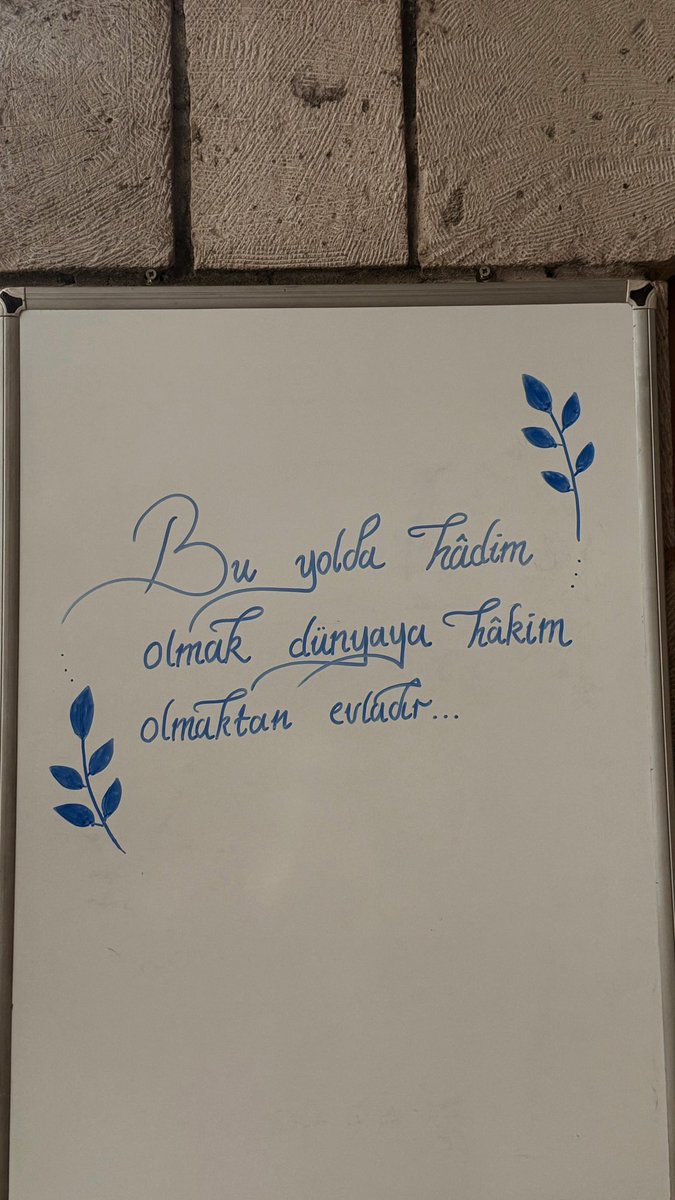 Bu yolda hâdim
olmak dünyaya hâkim
olmaktan evladır...